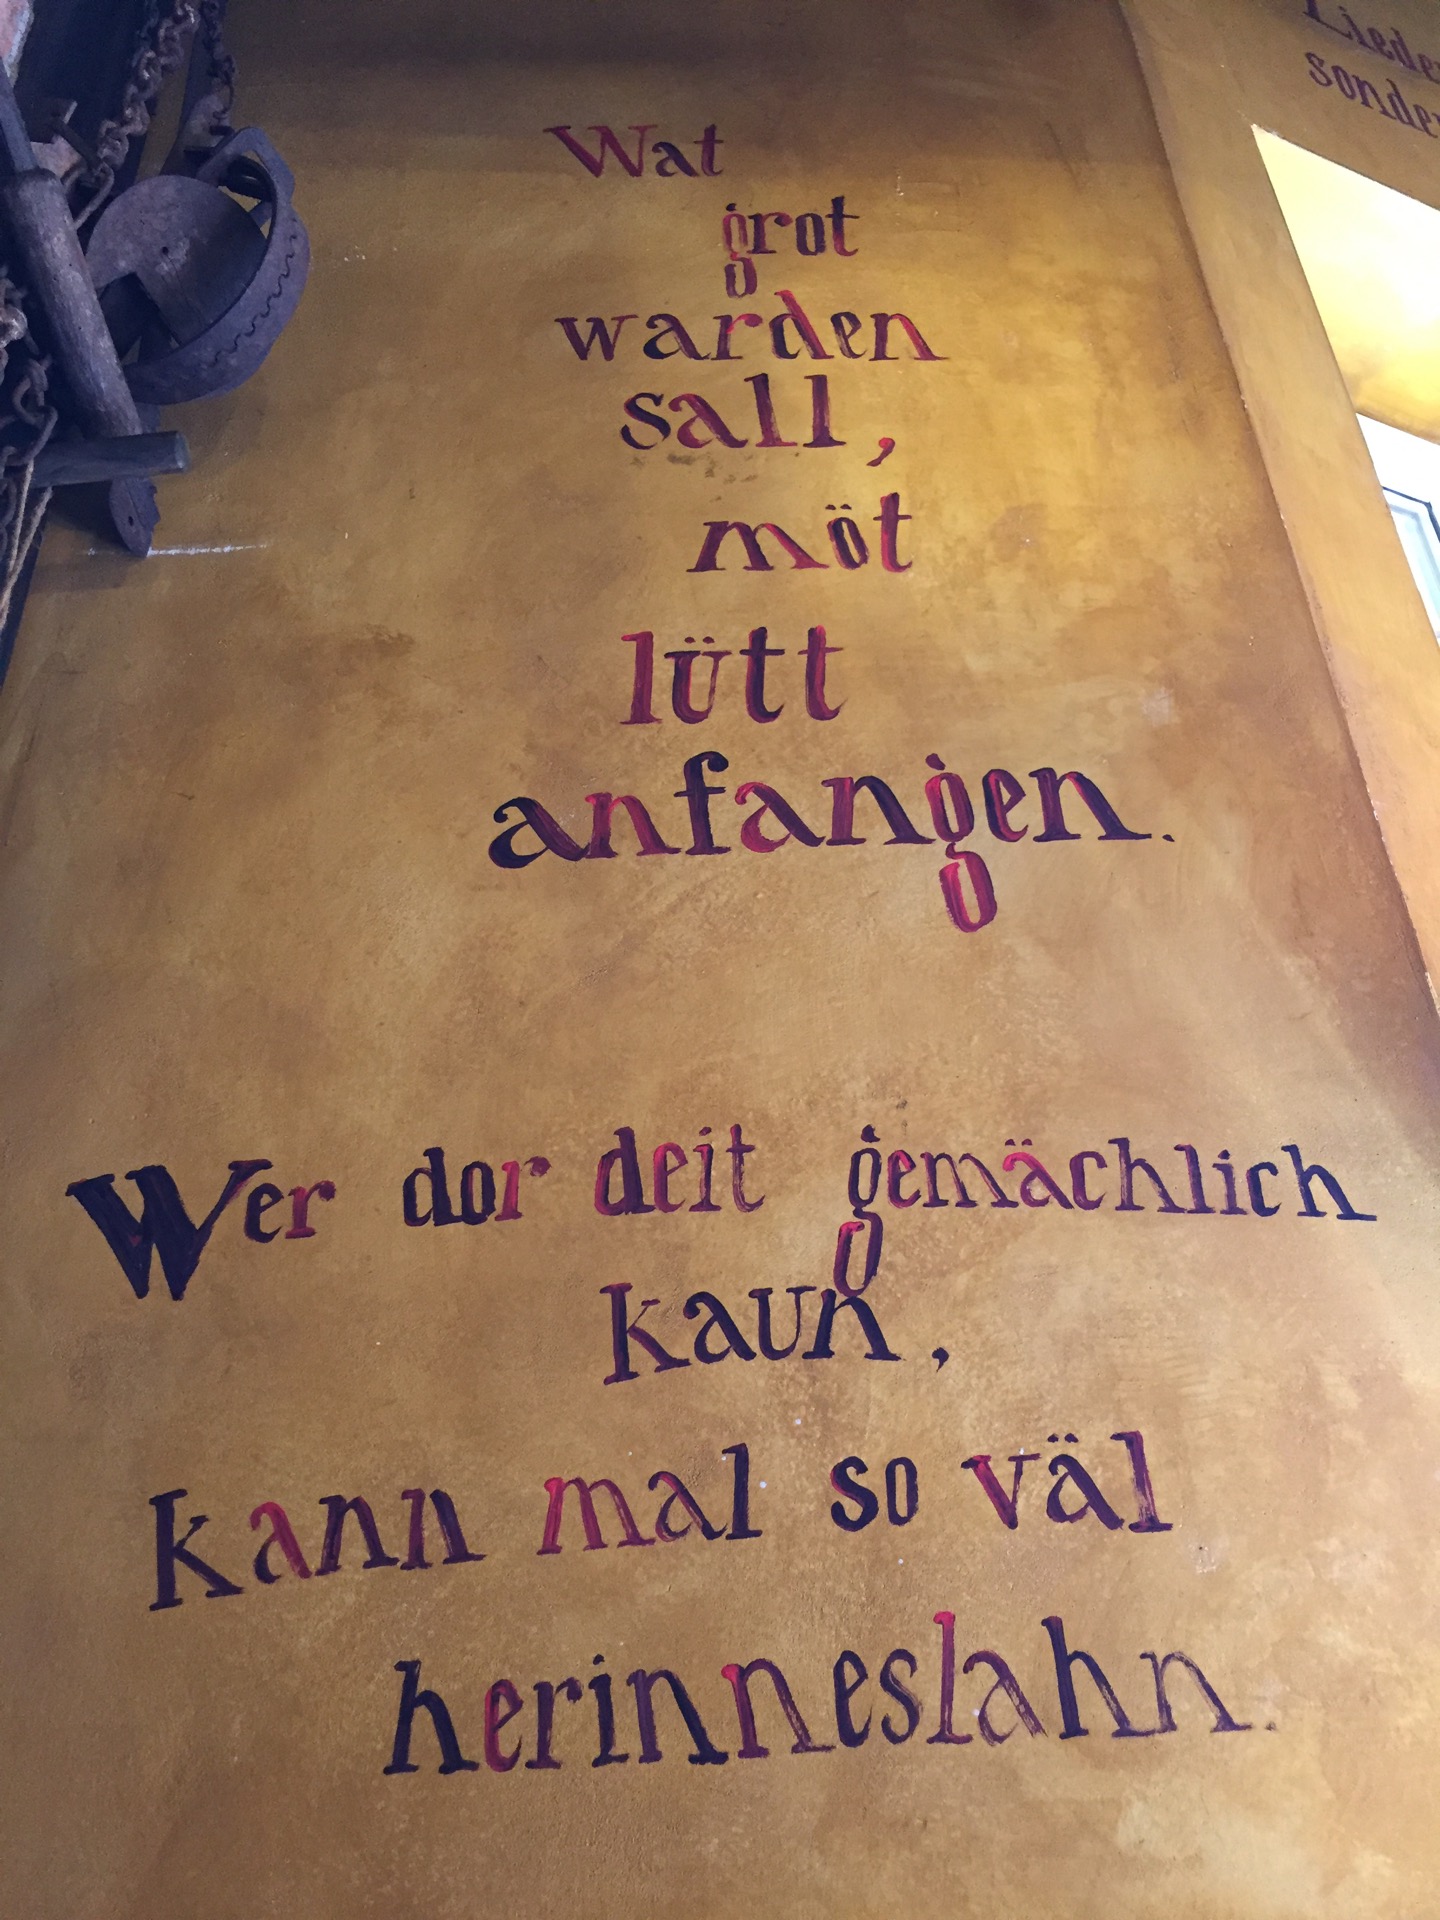 Wat
grot
warden
sall,
möt
lütt
anfangen.
Wer dor deit gemächlich
kaun,
kann mal so väl
herinneslahn.